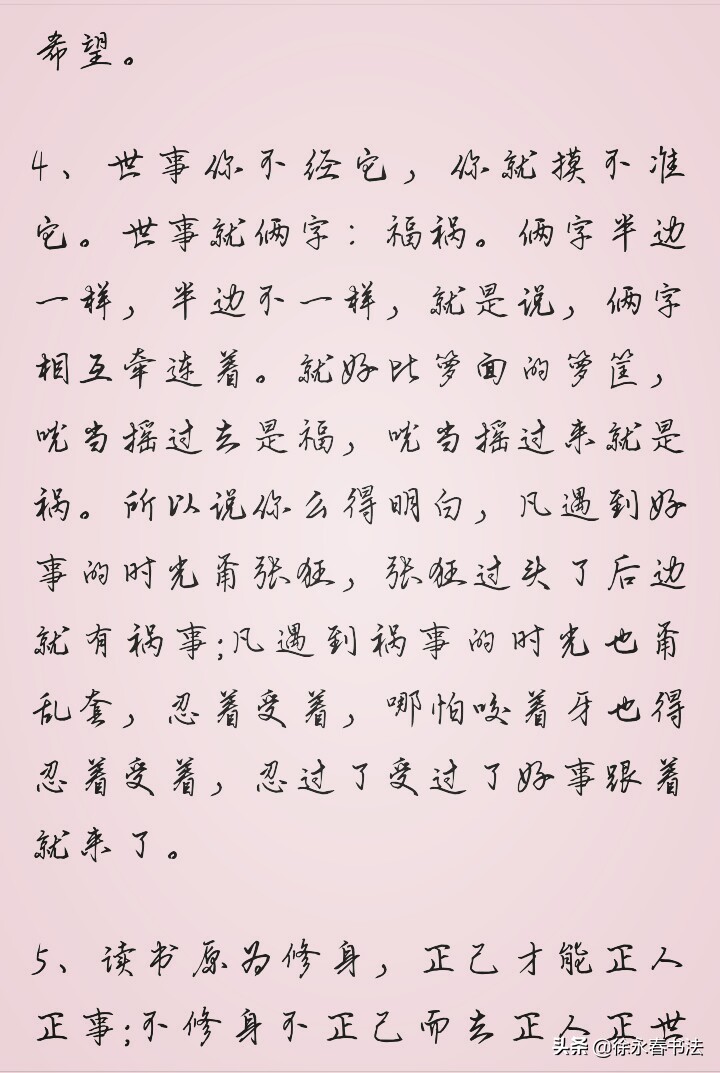 希望。
4、世事你不经它，你就摸不准
它。世事就俩字：福祸。俩字半边
一样，半边不一样，就是说，俩字
相互牵连着。就好比箩面的箩筐，
咣当摇过去是福，咣当摇过来就是
祸。所以说你么得明白，凡遇到好
事的时光甭张狂，张狂过头了后边
就有祸事;凡遇到祸事的时光也甭
乱套，忍着受着，哪怕咬着牙也得
忍着受着，忍过了受过了好事跟着
就来了。
5、读书原为修身，正己才能正人
正事;不修身不正己而去正人正世
头条 @徐永春书法